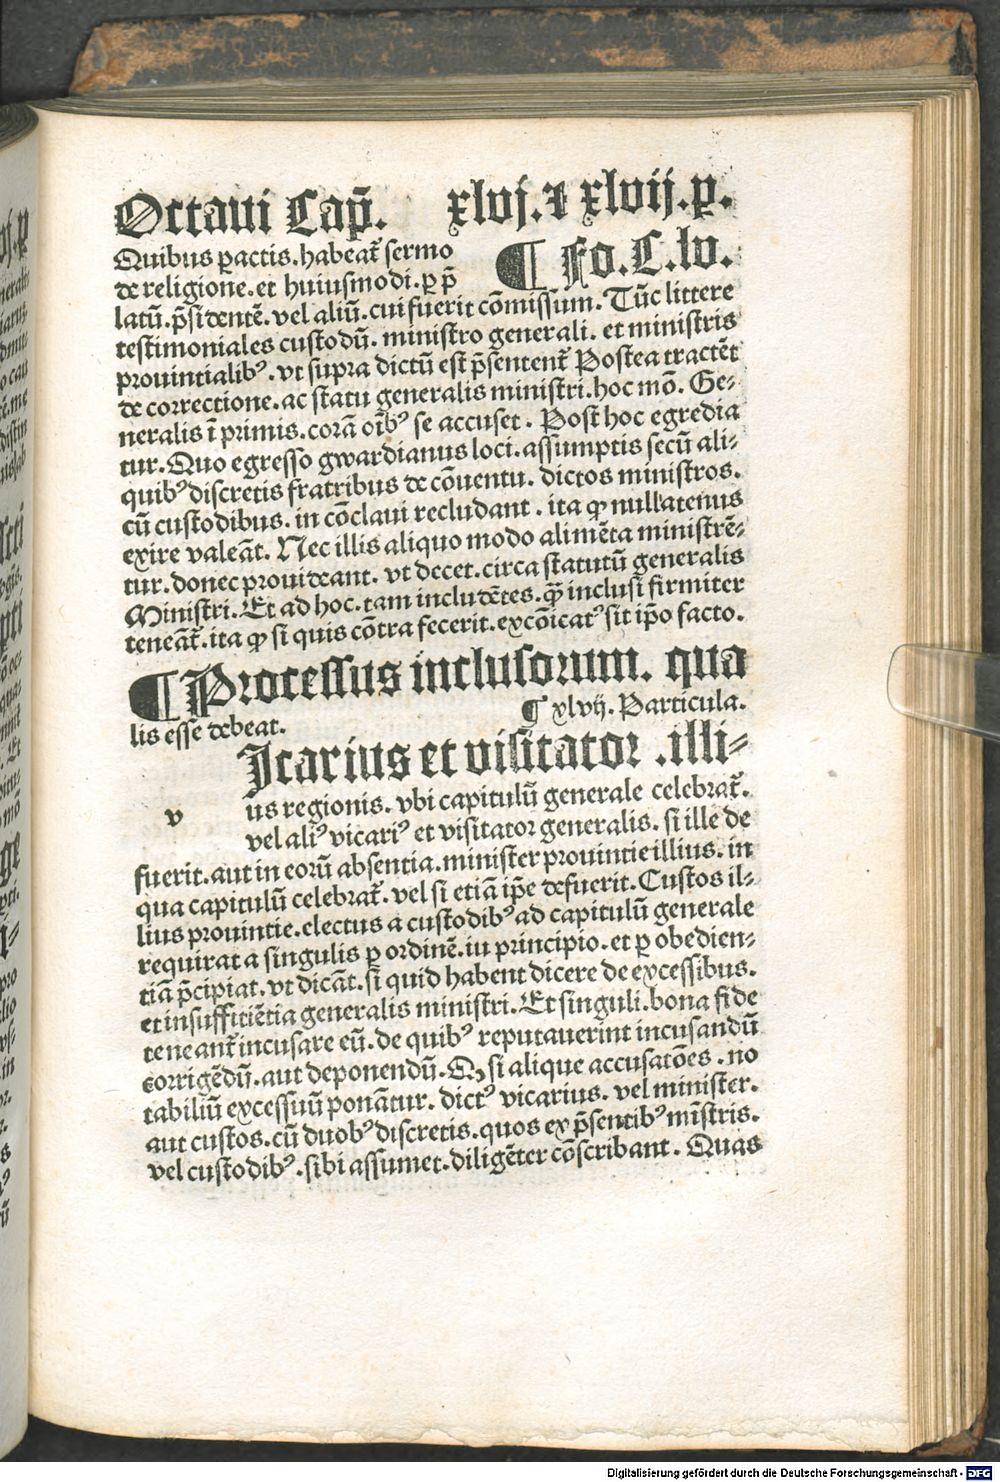 Octaui Cap̄. xlvj. ⁊ xlvij. p̲.
¶ Fo. C. lv.
Quibus ꝑactis. habeat᷑ sermo
de religione. et huiusmodi. ꝑ p̄
latū. p̄sidentē. vel aliū. cui fuerit cōmissum. Tūc littere
testimoniales custodū. ministro generali. et ministris
prouintialibꝰ. vt supra dictū est p̄sentent᷑ Postea tractēt
de correctione. ac statu generalis ministri. hoc mō. Ge⸗
neralis ī primis. corā oībꝰ se accuset. Post hoc egredia
tur. Quo egresso gwardianus loci. assumptis secū ali⸗
quibꝰ discretis fratribus de cōuentu. dictos ministros.
cū custodibus. in cōclaui recludant. ita ꝙ nullatenus
exire valeāt. Nec illis aliquo modo alimēta ministrē⸗
tur. donec prouideant. vt decet. circa statutū generalis
Ministri. Et ad hoc. tam includētes. ꝙ̄ inclusi firmiter
teneāt᷑. ita ꝙ si quis cōtra fecerit. excōicatꝰ sit ip̄o facto.
¶ Processus inclusorum. qua
lis esse debeat. ¶ xlvij. Particula.
v Icarius et visitator. illi⸗
us regionis. vbi capitulū generale celebrat᷑.
vel aliꝰ vicariꝰ et visitator generalis. si ille de
fuerit. aut in eorū absentia. minister prouintie illius. in
qua capitulū celebrat᷑. vel si etiā ip̄e defuerit. Custos il⸗
lius prouintie. electus a custodibꝰ ad capitulū generale
requirat a singulis ꝑ ordinē. iu principio. et ꝑ obedien⸗
tiā p̄cipiat. vt dicāt. si quid habent dicere de excessibus.
et insuffitiētia generalis ministri. Et singuli. bona fide
teneant᷑ incusare eū. de quibꝰ reputauerint incusandū
corrigēdū. aut deponendū. Qꝫ si alique accusatōes. no
tabiliū excessuū ponātur. dictꝰ vicarius. vel minister.
aut custos. cū duobꝰ discretis. quos ex p̄sentibꝰ mīstris.
vel custodibꝰ. sibi assumet. diligēter cōscribant. Quas
Digitalisierung gefördert durch die Deutsche Forschungsgemeinschaft - DFG